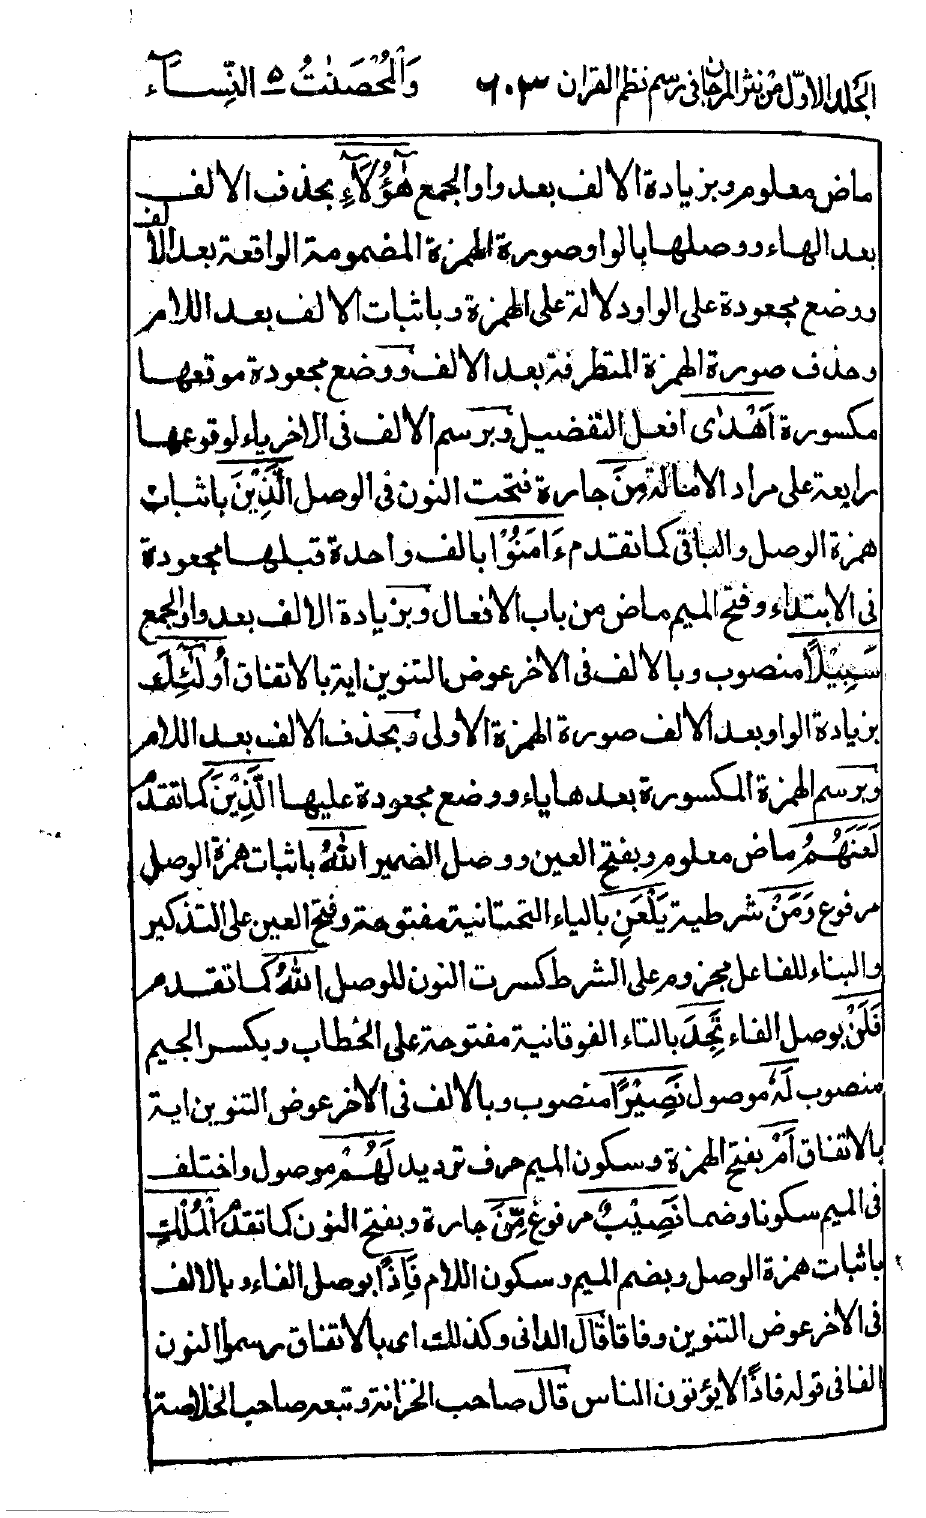 المجلد الاول من نثر المرجان فى رسم نظم القران ٦٠٣ وَالْمُحْصَنٰتُ ٥ النِّسَآء
ماض معلوم وبزيادة الالف بعد واو الجمع هٰٓؤُلَآءِ بحذف الالف
بعد الهاء ووصلها بالواو صورة الهمزة المضمومة الواقعة بعد الالف
ووضع مجعودة على الواو دلالة على الهمزة وباثبات الالف بعد اللام
وحذف صورة الهمزة المتطرفة بعد الالف ووضع مجعودة موقعها
مكسورة اَهْدٰى افعل التفضيل وبرسم الالف فى الاخر ياء لوقوعها
رابعة على مراد الامالة مِنَ جارة فتحت النون فى الوصل الَّذِيْنَ باثبات
همزة الوصل والباقى كما تقدم ءَامَنُوْا بالف واحدة قبلها مجعودة
فى الابتداء وفتح الميم ماض من باب الافعال وبزيادة الالف بعد واو الجمع
سَبِيْلًا منصوب وبالالف فى الاخر عوض التنوين اية بالاتفاق اُولٰٓئِكَ
بزيادة الواو بعد الالف صورة الهمزة الاولى وبحذف الالف بعد اللام
وبرسم الهمزة المكسورة بعدها ياء ووضع مجعودة عليها الَّذِيْنَ كما تقدم
لَعَنَهُمُ ماض معلوم وبفتح العين ووصل الضمير اللهُ باثبات همزة الوصل
مرفوع وَمَنْ شرطية يَلْعَنِ بالياء التحتانية مفتوحة وفتح العين على التذكير
والبناء للفاعل مجزوم على الشرط كسرت النون للوصل اللهُ كما تقدم
فَلَنْ بوصل الفاء تَجِدَ بالتاء الفوقانية مفتوحة على الخطاب وبكسر الجيم
منصوب لَهٗ موصول نَصِيْرًا منصوب وبالالف فى الاخر عوض التنوين اية
بالاتفاق اَمْ بفتح الهمزة وسكون الميم حرف ترديد لَهُمْ موصول واختلف
فى الميم سكونا وضما نَصِيْبٌ مرفوع مِّنَ جارة وبفتح النون كما تقدم الْمُلْكِ
باثبات همزة الوصل وبضم الميم وسكون اللام فَاِذًا بوصل الفاء وبالالف
فى الاخر عوض التنوين وفاقا قال الدانى وكذلك اى بالاتفاق رسموا النون
الفا فى قوله فاذًا لا يؤتون الناس قال صاحب الخزانة وتبعه صاحب الخلاصة